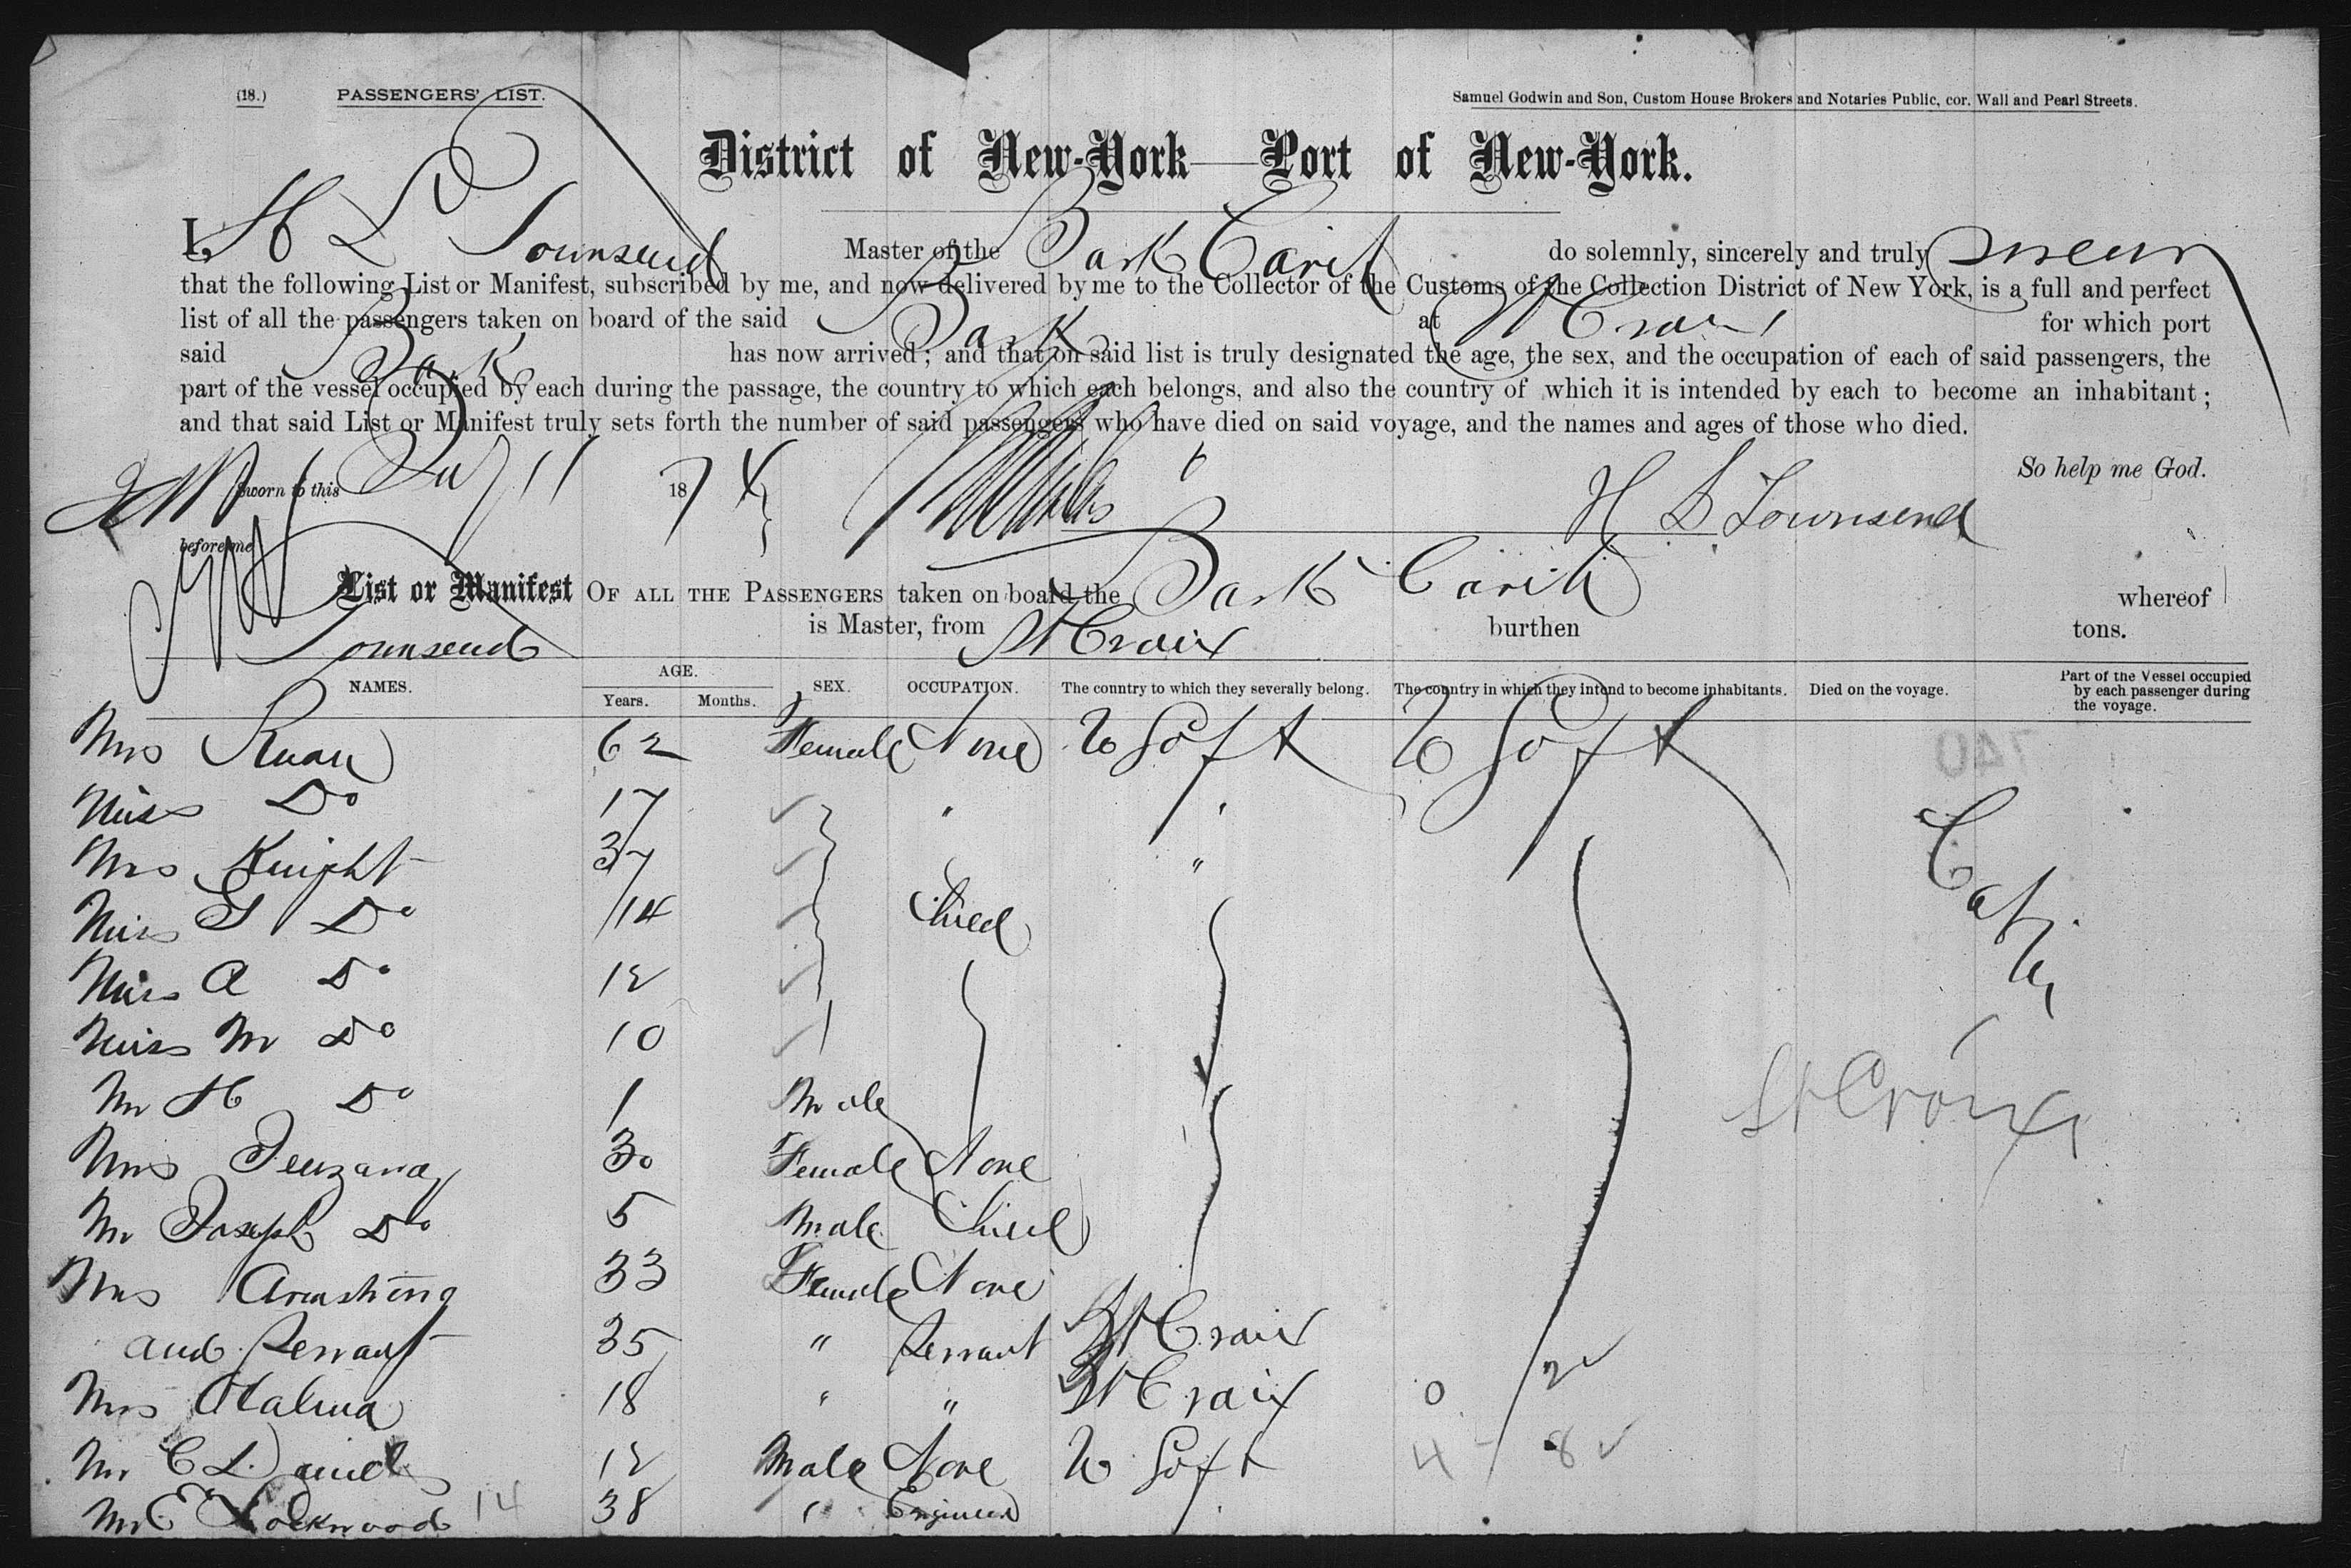 (18.) PASSENGERS' LIST. Samuel Godwin and Son, Custom House Brokers and Notaries Public, cor. Wall and Pearl Streets.
District of New-York—Port of New-York.
I, H L Townsend Master of the Bark Carib do solemnly, sincerely and truly swear
that the following List or Manifest, subscribed by me, and now delivered by me to the Collector of the Customs of the Collection District of New York, is a full and perfect
list of all the passengers taken on board of the said Bark at St Croix for which port
said Bark has now arrived; and that on said list is truly designated the age, the sex, and the occupation of each of said passengers, the
part of the vessel occupied by each during the passage, the country to which each belongs, and also the country of which it is intended by each to become an inhabitant;
and that said List or Manifest truly sets forth the number of said passengers who have died on said voyage, and the names and ages of those who died.
So help me God.
Sworn to this 11 187 H L Townsend
before me
List or Manifest OF ALL THE PASSENGERS taken on board the Bark Carib whereof
Townsend is Master, from St Croix burthen tons.
NAMES. AGE. Years. Months. SEX. OCCUPATION. The country to which they severally belong. The country in which they intend to become inhabitants. Died on the voyage. Part of the Vessel occupied by each passenger during the voyage.
Mrs Ruan 62 Female None
Miss Do 17 " "
Mrs Knight 37 "
Miss Do 14 Child
Miss A Do 12
Miss M Do 10
Mr H Do 1 Male
St Croix
Mrs 30 Female None
Mr Joseph Do 5 Male Child
Mrs Armstrong 33 Female None
and Servant 35 " Servant St Croix 2
Mrs 18 " " St Croix 0
Mr C L 12 Male None 4 8
Mr E Lockwood 14 38 " Engineer